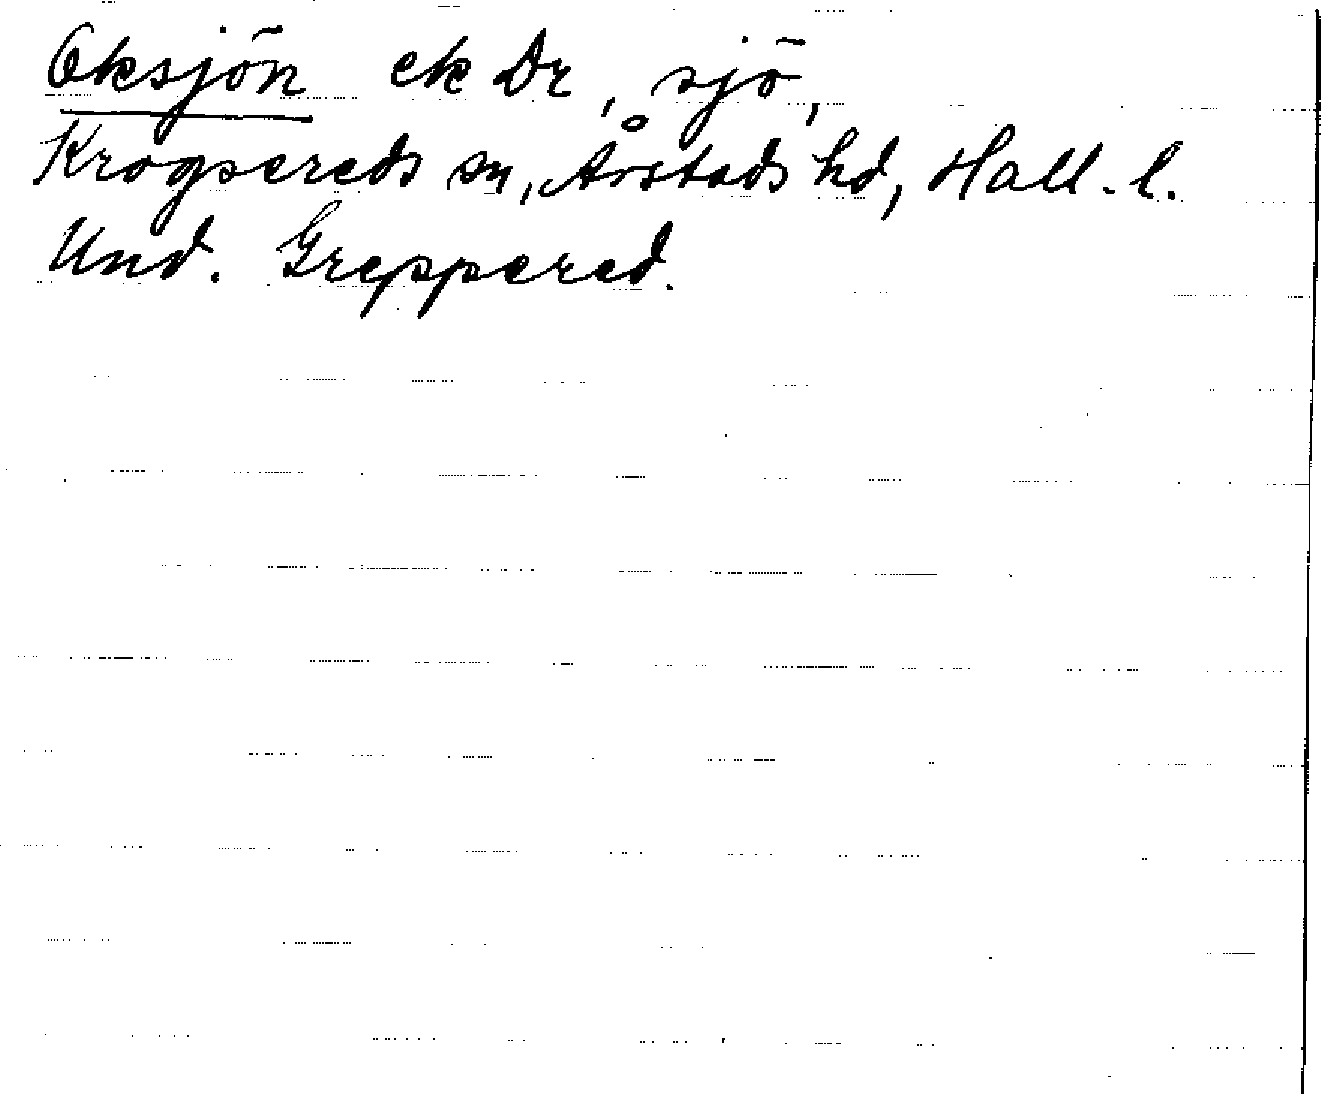 Oksjön ek Dr, sjö,
Krogsereds sn, Årstads hd, Hall. l.
Und. Greppered.